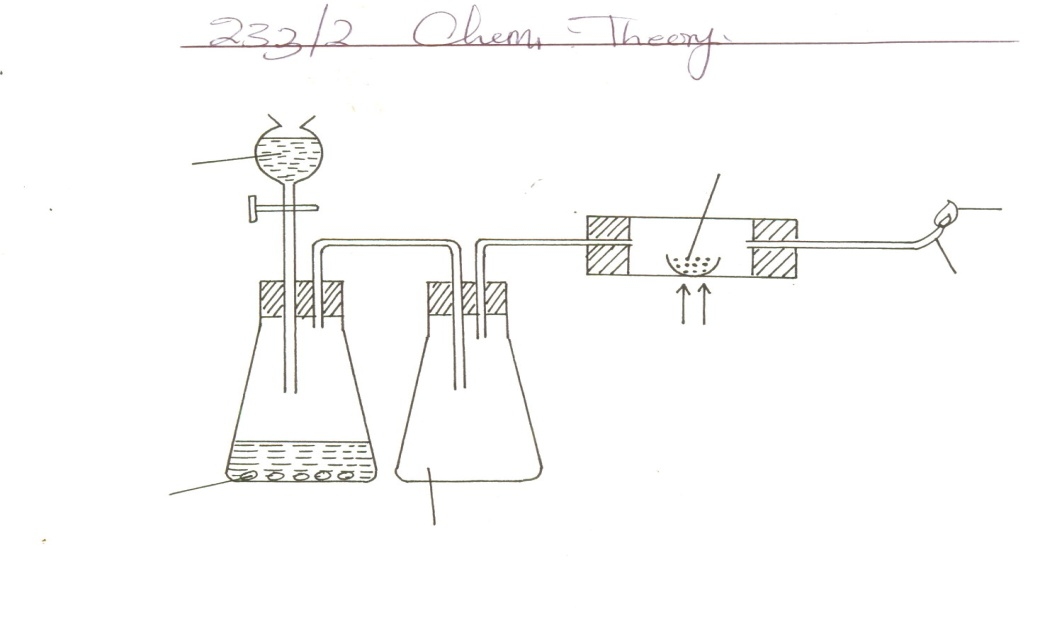 233/2 Chem. Theory.